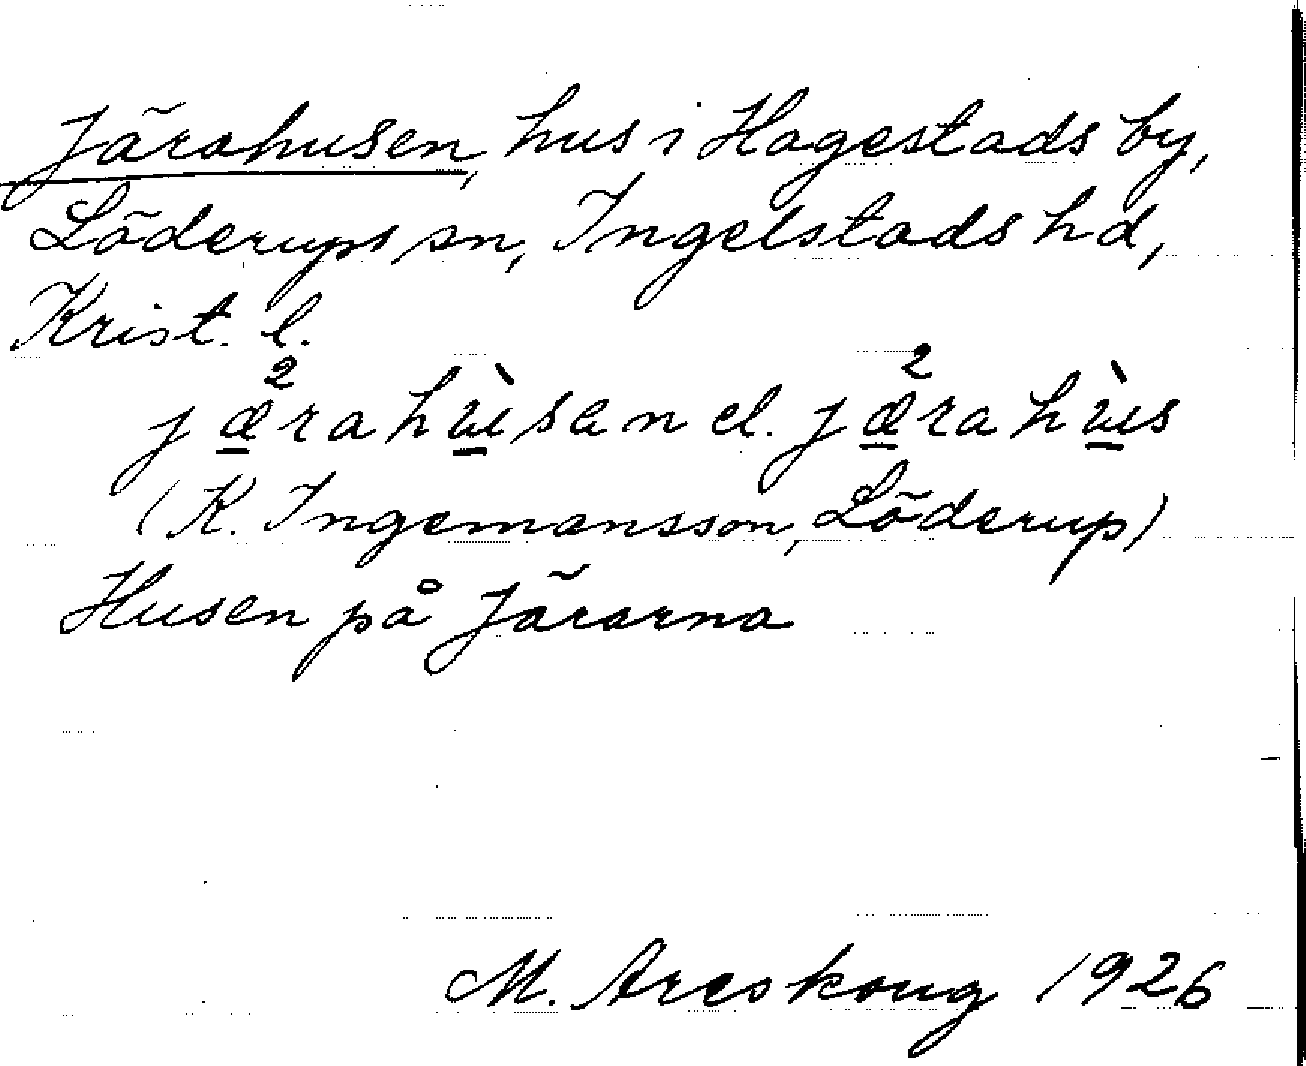 Järahusen, hus i Hagestads by,
Löderups sn, Ingelstads hd,
Krist. l.
jæ̱²rahù̱san el. jæ̱²rahù̱s
(K. Ingemansson, Löderup)
Husen på Järarna
M. Areskoug 1926